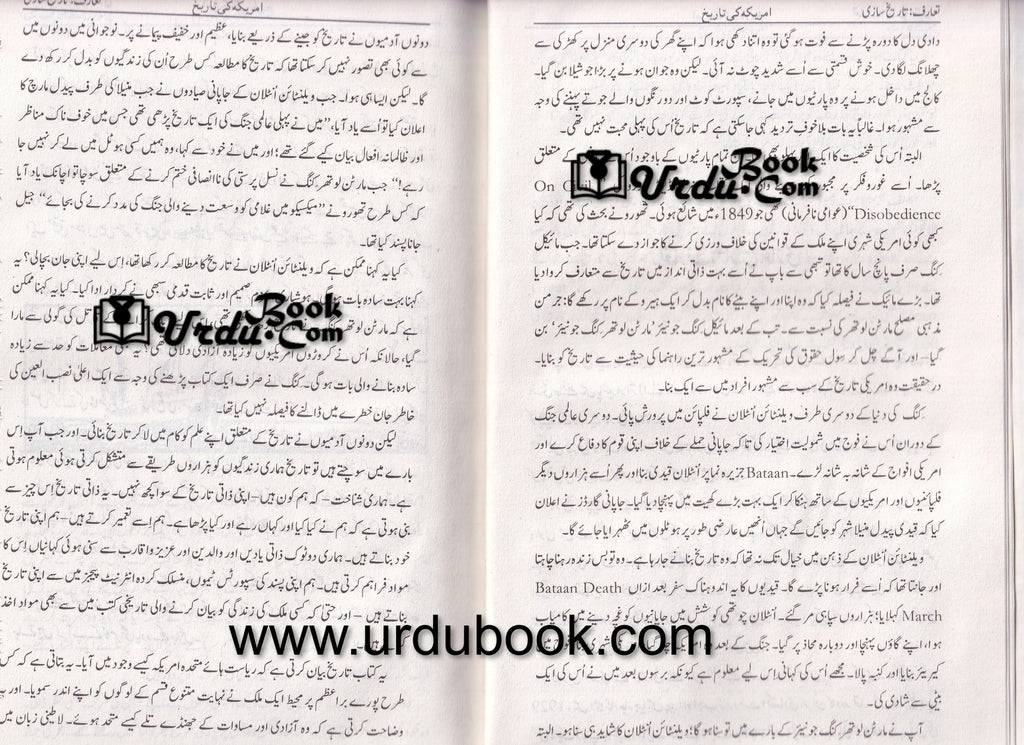 تعارف: تاریخ سازی
امریکہ کی تاریخ
دادی دل کا دورہ پڑنے سے فوت ہو گئی تو وہ اتنا دکھی ہوا کہ اپنے گھر کی دوسری منزل پر کھڑکی سے
چھلانگ لگا دی۔ خوش قسمتی سے اُسے شدید چوٹ نہ آئی۔ لیکن وہ جوان ہونے پر بڑا جوشیلا بن گیا۔
کالج میں داخل ہونے پر وہ پارٹیوں میں جانے، سپورٹ کوٹ اور دو رنگوں والے جوتے پہننے کی وجہ
سے مشہور ہوا۔ غالباً یہ بات بلا خوفِ تردید کہی جا سکتی ہے کہ تاریخ اُس کی پہلی محبت نہیں تھی۔
البتہ اُس کی شخصیت کا ایک تمام پارٹیوں کے باوجود اُس کے متعلق
پڑھا۔ اُسے غور و فکر پر On Civil
Disobedience“ (عوامی نافرمانی) تھی جو 1849ء میں شائع ہوئی۔ تھورو نے بحث کی تھی کہ کیا
کبھی کوئی امریکی شہری اپنے ملک کے قوانین کی خلاف ورزی کرنے کا جواز دے سکتا تھا۔ جب مائیکل
کنگ صرف پانچ سال کا تھا تو تبھی سے باپ نے اُسے بہت ذاتی انداز میں تاریخ سے متعارف کروا دیا
تھا۔ بڑے مائیک نے فیصلہ کیا کہ وہ اپنا اور اپنے بیٹے کا نام بدل کر ایک ہیرو کے نام پر رکھے گا: جرمن
مذہبی مصلح مارٹن لوتھر کی نسبت سے۔ تب کے بعد مائیکل کنگ جونیئر ’مارٹن لوتھر کنگ جونیئر‘ بن
گیا—اور آگے چل کر سول حقوق کی تحریک کے مشہور ترین راہنما کی حیثیت سے تاریخ کو بنایا۔
درحقیقت وہ امریکی تاریخ کے سب سے مشہور افراد میں سے ایک بنا۔
کنگ کی دنیا کے دوسری طرف ویلنٹائن اُنٹلان نے فلپائن میں پرورش پائی۔ دوسری عالمی جنگ
کے دوران اُس نے فوج میں شمولیت اختیار کی تاکہ جاپانی حملے کے خلاف اپنی قوم کا دفاع کرے اور
امریکی افواج کے شانہ بہ شانہ لڑے۔ Bataan جزیرہ نما پر اُنٹلان قیدی بنا اور پھر اُسے ہزاروں دیگر
فلپائنیوں اور امریکیوں کے ساتھ ہنکا کر ایک بہت بڑے کھیت میں پہنچا دیا گیا۔ جاپانی گارڈز نے اعلان
کیا کہ قیدی پیدل منیلا شہر کو جائیں گے جہاں اُنھیں عارضی طور پر ہوٹلوں میں ٹھہرایا جائے گا۔
ویلنٹائن اُنٹلان کے ذہن میں خیال تک نہ تھا کہ وہ تاریخ بنانے جا رہا ہے۔ وہ تو بس زندہ رہنا چاہتا
اور جانتا تھا کہ اُسے فرار ہونا پڑے گا۔ قیدیوں کا یہ اندوہناک سفر بعد ازاں Bataan Death
March کہلایا؛ ہزاروں سپاہی مر گئے۔ اُنٹلان چوتھی کوشش میں جاپانیوں کو غچہ دینے میں کامیاب
ہوا، اپنے گاؤں پہنچا اور دوبارہ محاذ پر گیا۔ جنگ کے بعد
کیریئر بنایا اور کنبہ پالا۔ مجھے اُس کی کہانی اِس لیے معلوم ہے کیونکہ برسوں بعد میں نے اُس کی ایک
بیٹی سے شادی کی۔
آپ نے مارٹن لوتھر کنگ جونیئر کے بارے میں تو سنا ہوگا؛ ویلنٹائن اُنٹلان کا شاید ہی سنا ہو۔ البتہ
امریکہ کی تاریخ
تعارف: تاریخ سازی
دونوں آدمیوں نے تاریخ کو جینے کے ذریعے بنایا، عظیم اور خفیف پیمانے پر۔ نوجوانی میں دونوں میں
سے کوئی بھی تصور نہیں کر سکتا تھا کہ تاریخ کا مطالعہ کس طرح اُن کی زندگیوں کو بدل کر رکھ دے
گا۔ لیکن ایسا ہی ہوا۔ جب ویلنٹائن اُنٹلان کے جاپانی صیادوں نے جب منیلا کی طرف پیدل مارچ کا
اعلان کیا تو اُسے یاد آیا، ”میں نے پہلی عالمی جنگ کی ایک تاریخ پڑھی تھی جس میں خوف ناک مناظر
اور ظالمانہ افعال بیان کیے گئے تھے؛ اور میں نے خود سے کہا، وہ ہمیں کسی ہوٹل میں لے کر نہیں جا
رہے!“ جب مارٹن لوتھر کنگ نے نسل پرستی کی ناانصافی ختم کرنے کے متعلق سوچا تو اچانک یاد آیا
کہ کس طرح تھورو نے ”میکسیکو میں غلامی کو وسعت دینے والی جنگ کی مدد کرنے کی بجائے“ جیل
جانا پسند کیا تھا۔
کیا یہ کہنا ممکن ہے کہ ویلنٹائن اُنٹلان نے تاریخ کا مطالعہ کر رکھا تھا، اِس لیے اپنی جان بچالی؟ یہ
کہنا بہت سادہ بات ہوگی۔ ہوشیاری، صمیم اور ثابت قدمی سبھی نے کردار ادا کیا۔ کیا یہ کہنا ممکن
ہے کہ مارٹن لوتھر کنگ قاتل کی گولی سے مارا
گیا، حالانکہ اُس نے کروڑوں امریکیوں کو زیادہ آزادی دلائی تھی؟ یہ بھی معاملات کو حد سے زیادہ
سادہ بنانے والی بات ہوگی۔ کنگ نے صرف ایک کتاب پڑھنے کی وجہ سے ایک اعلیٰ نصب العین کی
خاطر جان خطرے میں ڈالنے کا فیصلہ نہیں کیا تھا۔
لیکن دونوں آدمیوں نے تاریخ کے متعلق اپنے علم کو کام میں لا کر تاریخ بنائی۔ اور جب آپ اِس
بارے میں سوچتے ہیں تو تاریخ ہماری زندگیوں کو ہزاروں طریقے سے متشکل کرتی ہوئی معلوم ہوتی
ہے۔ ہماری شناخت—کہ ہم کون ہیں—اپنی ذاتی تاریخ کے سوا کچھ نہیں۔ یہ ذاتی تاریخ اِس چیز سے
بنی ہوتی ہے کہ ہم نے کیا کیا اور کہاں رہے اور کیا پڑھا ہے۔ ہم اِسے تعمیر کرتے ہیں—ہم اپنی تاریخ
خود بناتے ہیں۔ ہماری دوٹوک ذاتی یادیں اور والدین اور عزیز و اقارب سے سنی ہوئی کہانیاں اِس کا
مواد فراہم کرتی ہیں۔ ہم اپنی پسند کی سپورٹس ٹیموں، منسلک کردہ انٹرنیٹ پیجز میں سے اپنی تاریخ
بناتے ہیں—اور حتیٰ کہ کسی ملک کی زندگی کو بیان کرنے والی تاریخی کتب میں سے بھی مواد اخذ
یہ کتاب تاریخ بیان کرتی ہے کہ ریاست ہائے متحدہ امریکہ کیسے وجود میں آیا۔ یہ بتاتی ہے کہ کس
طرح پورے براعظم پر محیط ایک ملک نے نہایت متنوع قسم کے لوگوں کو اپنے اندر سمویا۔ اور یہ
وضاحت کرتی ہے کہ وہ آزادی اور مساوات کے جھنڈے تلے کیسے متحد ہوئے۔ لاطینی زبان میں
UrduBook.Com
UrduBook.Com
www.urdubook.com